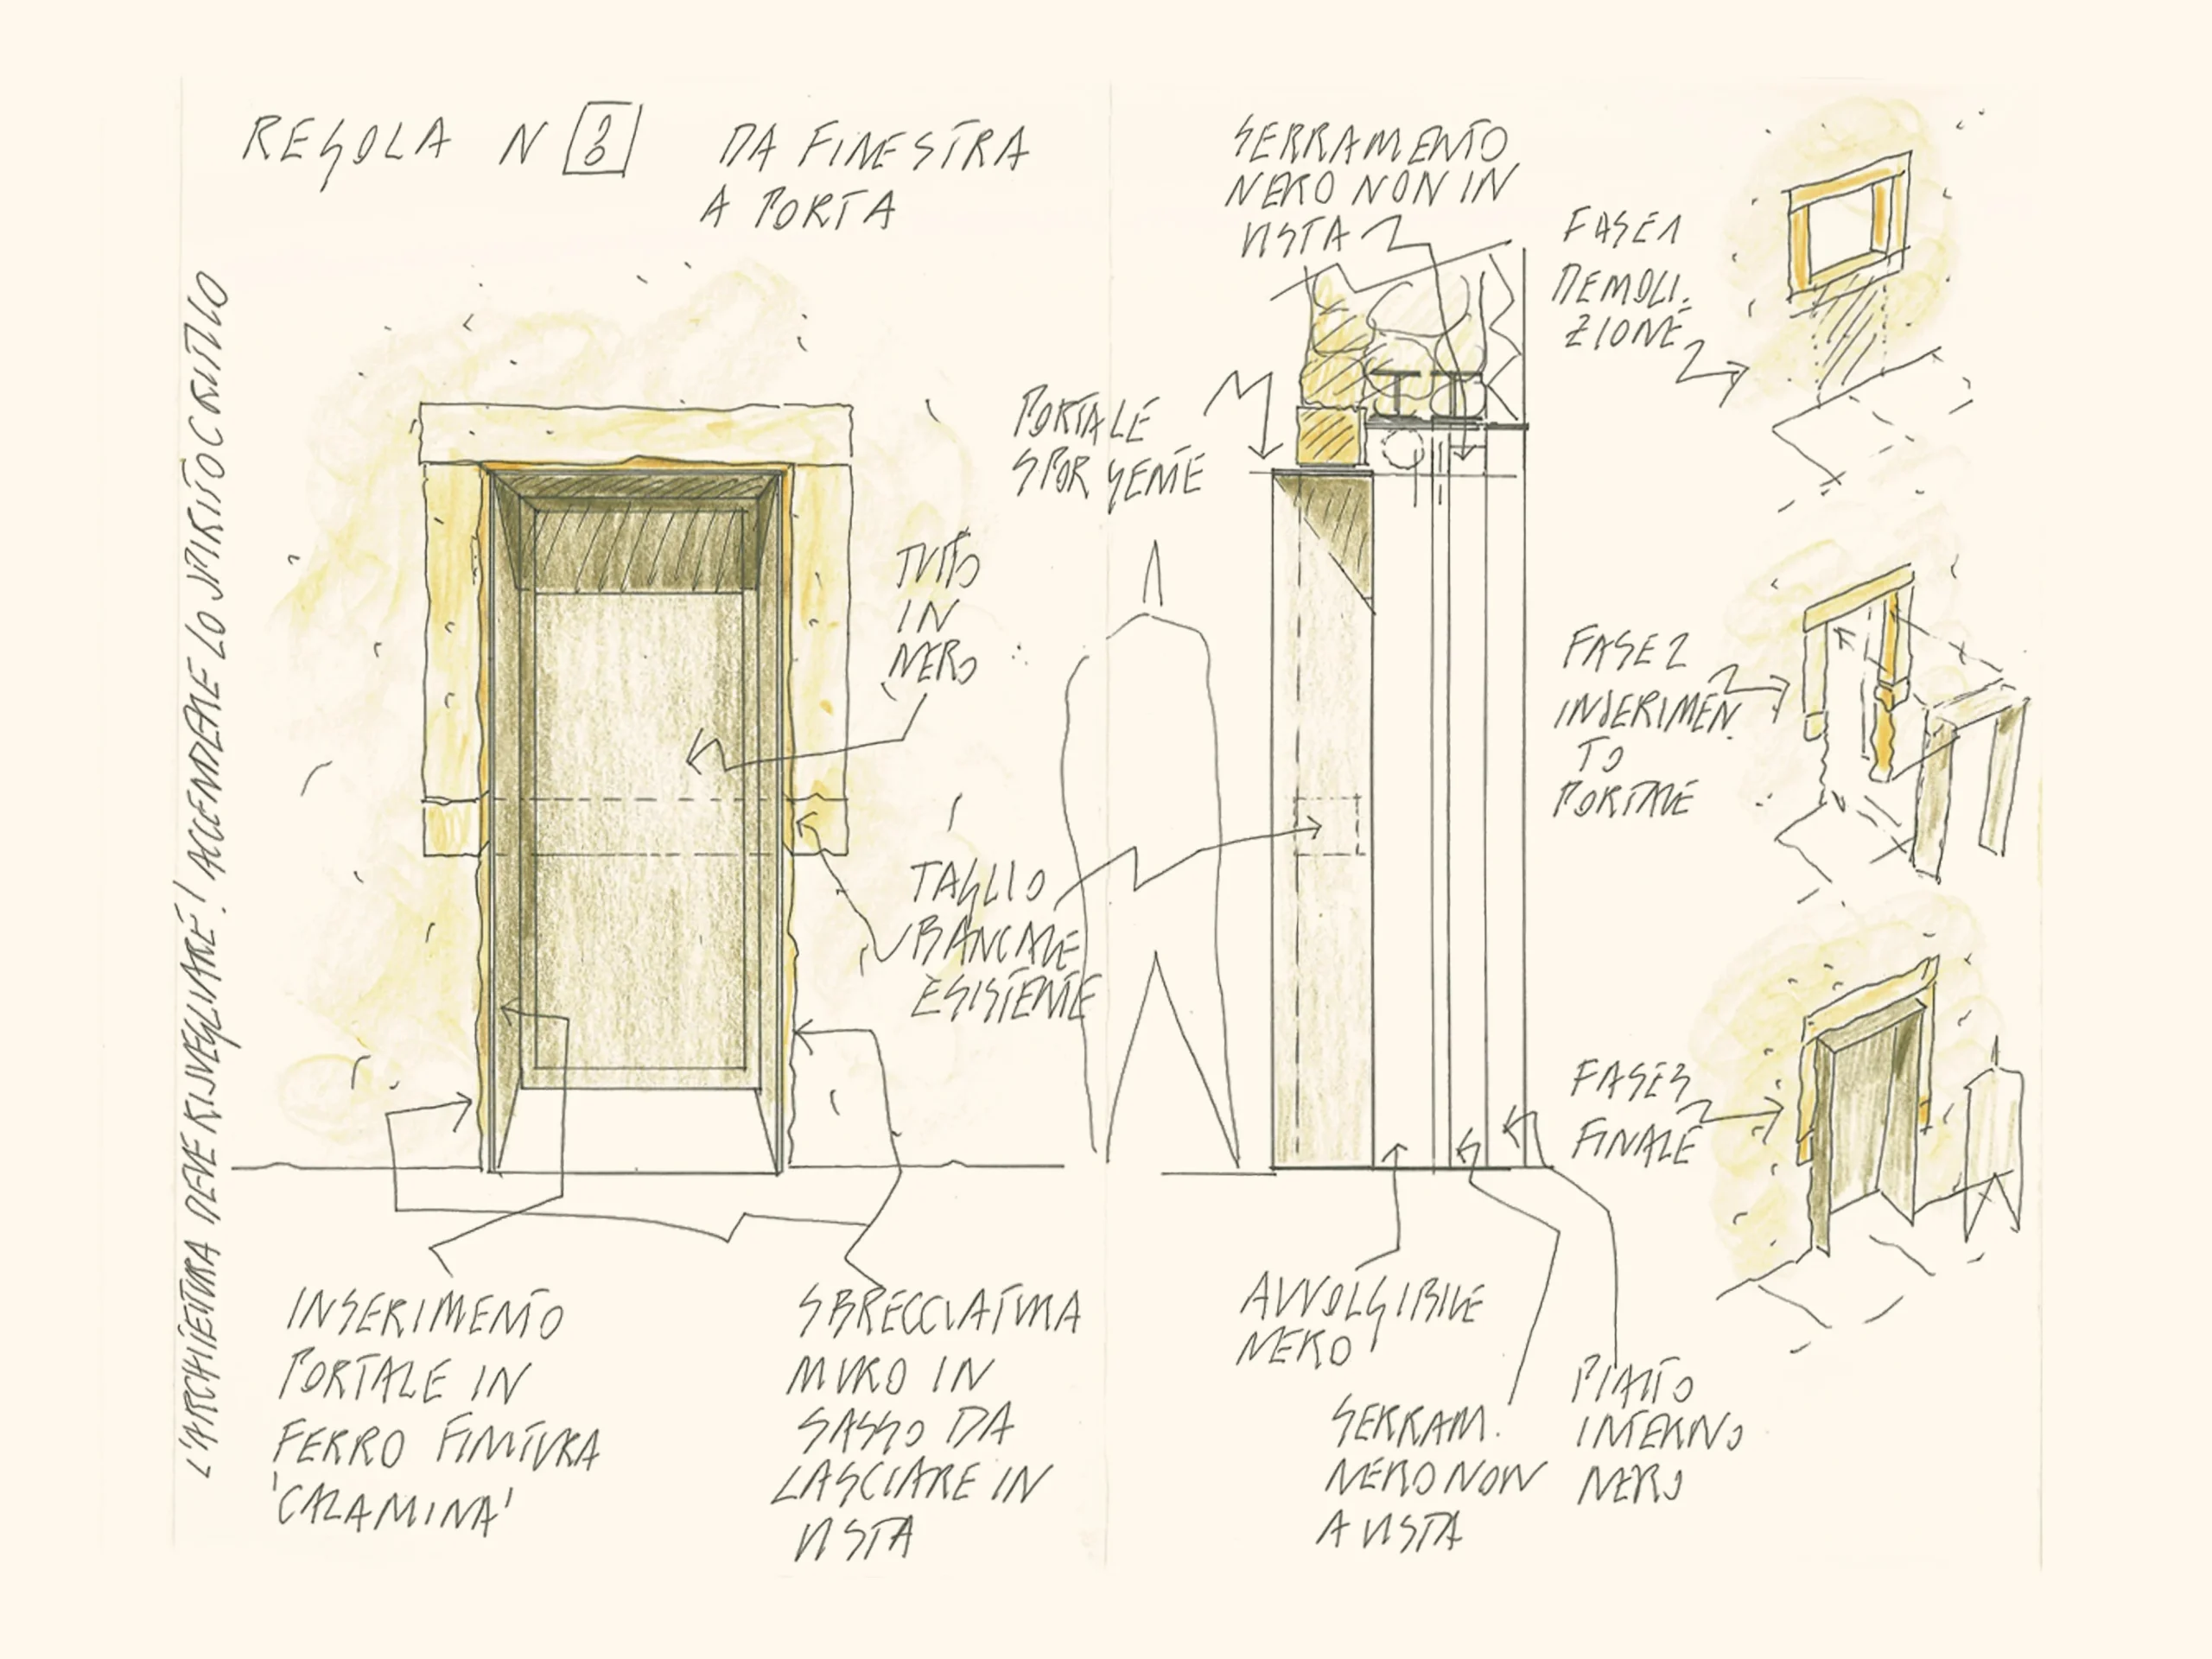 REGOLA N 8
DA FINESTRA
A PORTA
L'ARCHITETTURA DEVE RISVEGLIARE! ACCENDERE LO SPIRITO CRITICO
TUTTO
IN
NERO
TAGLIO
BANCALE
ESISTENTE
INSERIMENTO
PORTALE IN
FERRO FINITURA
'CALAMINA'
SBRECCIATURA
MURO IN
SASSO DA
LASCIARE IN
VISTA
SERRAMENTO
NERO NON IN
VISTA
PORTALE
SPORGENTE
AVVOLGIBILE
NERO
SERRAM.
NERO NON
A VISTA
PIATTO
INTERNO
NERO
FASE 1
DEMOLI.
ZIONE
FASE 2
INSERIMEN.
TO
PORTALE
FASE 3
FINALE